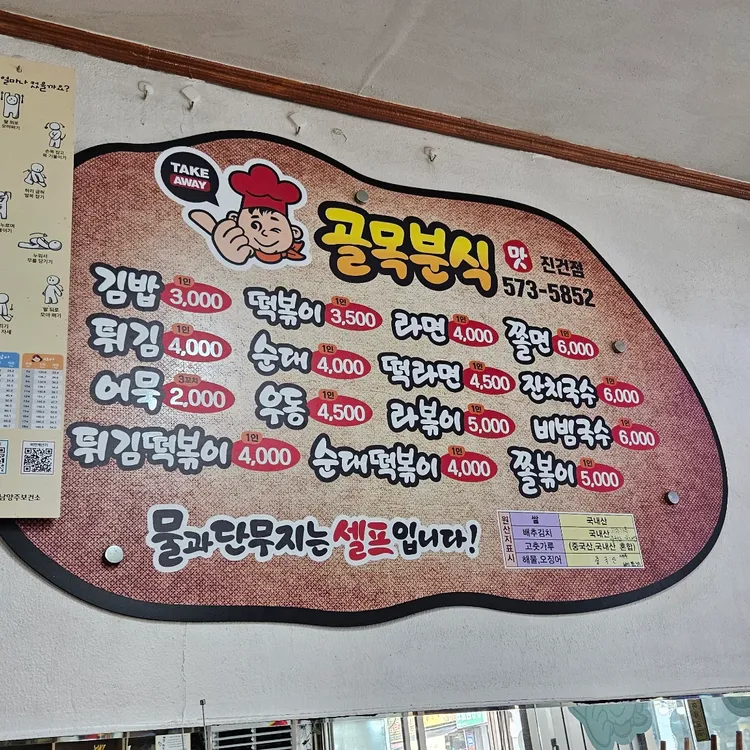 얼마나 컸을까요?
남양주보건소
TAKE
AWAY
골목분식 맛 진건점
573-5852
김밥 1인 3,000
떡볶이 1인 3,500
라면 1인 4,000
쫄면 1인 6,000
튀김 1인 4,000
순대 1인 4,000
떡라면 1인 4,500
잔치국수 1인 6,000
어묵 3꼬치 2,000
우동 1인 4,500
라볶이 1인 5,000
비빔국수 1인 6,000
튀김떡볶이 1인 4,000
순대떡볶이 1인 4,000
쫄볶이 1인 5,000
물과 단무지는 셀프입니다!
원산지표시
쌀 국내산
배추김치 국내산
고춧가루 (중국산,국내산 혼합)
해물,오징어